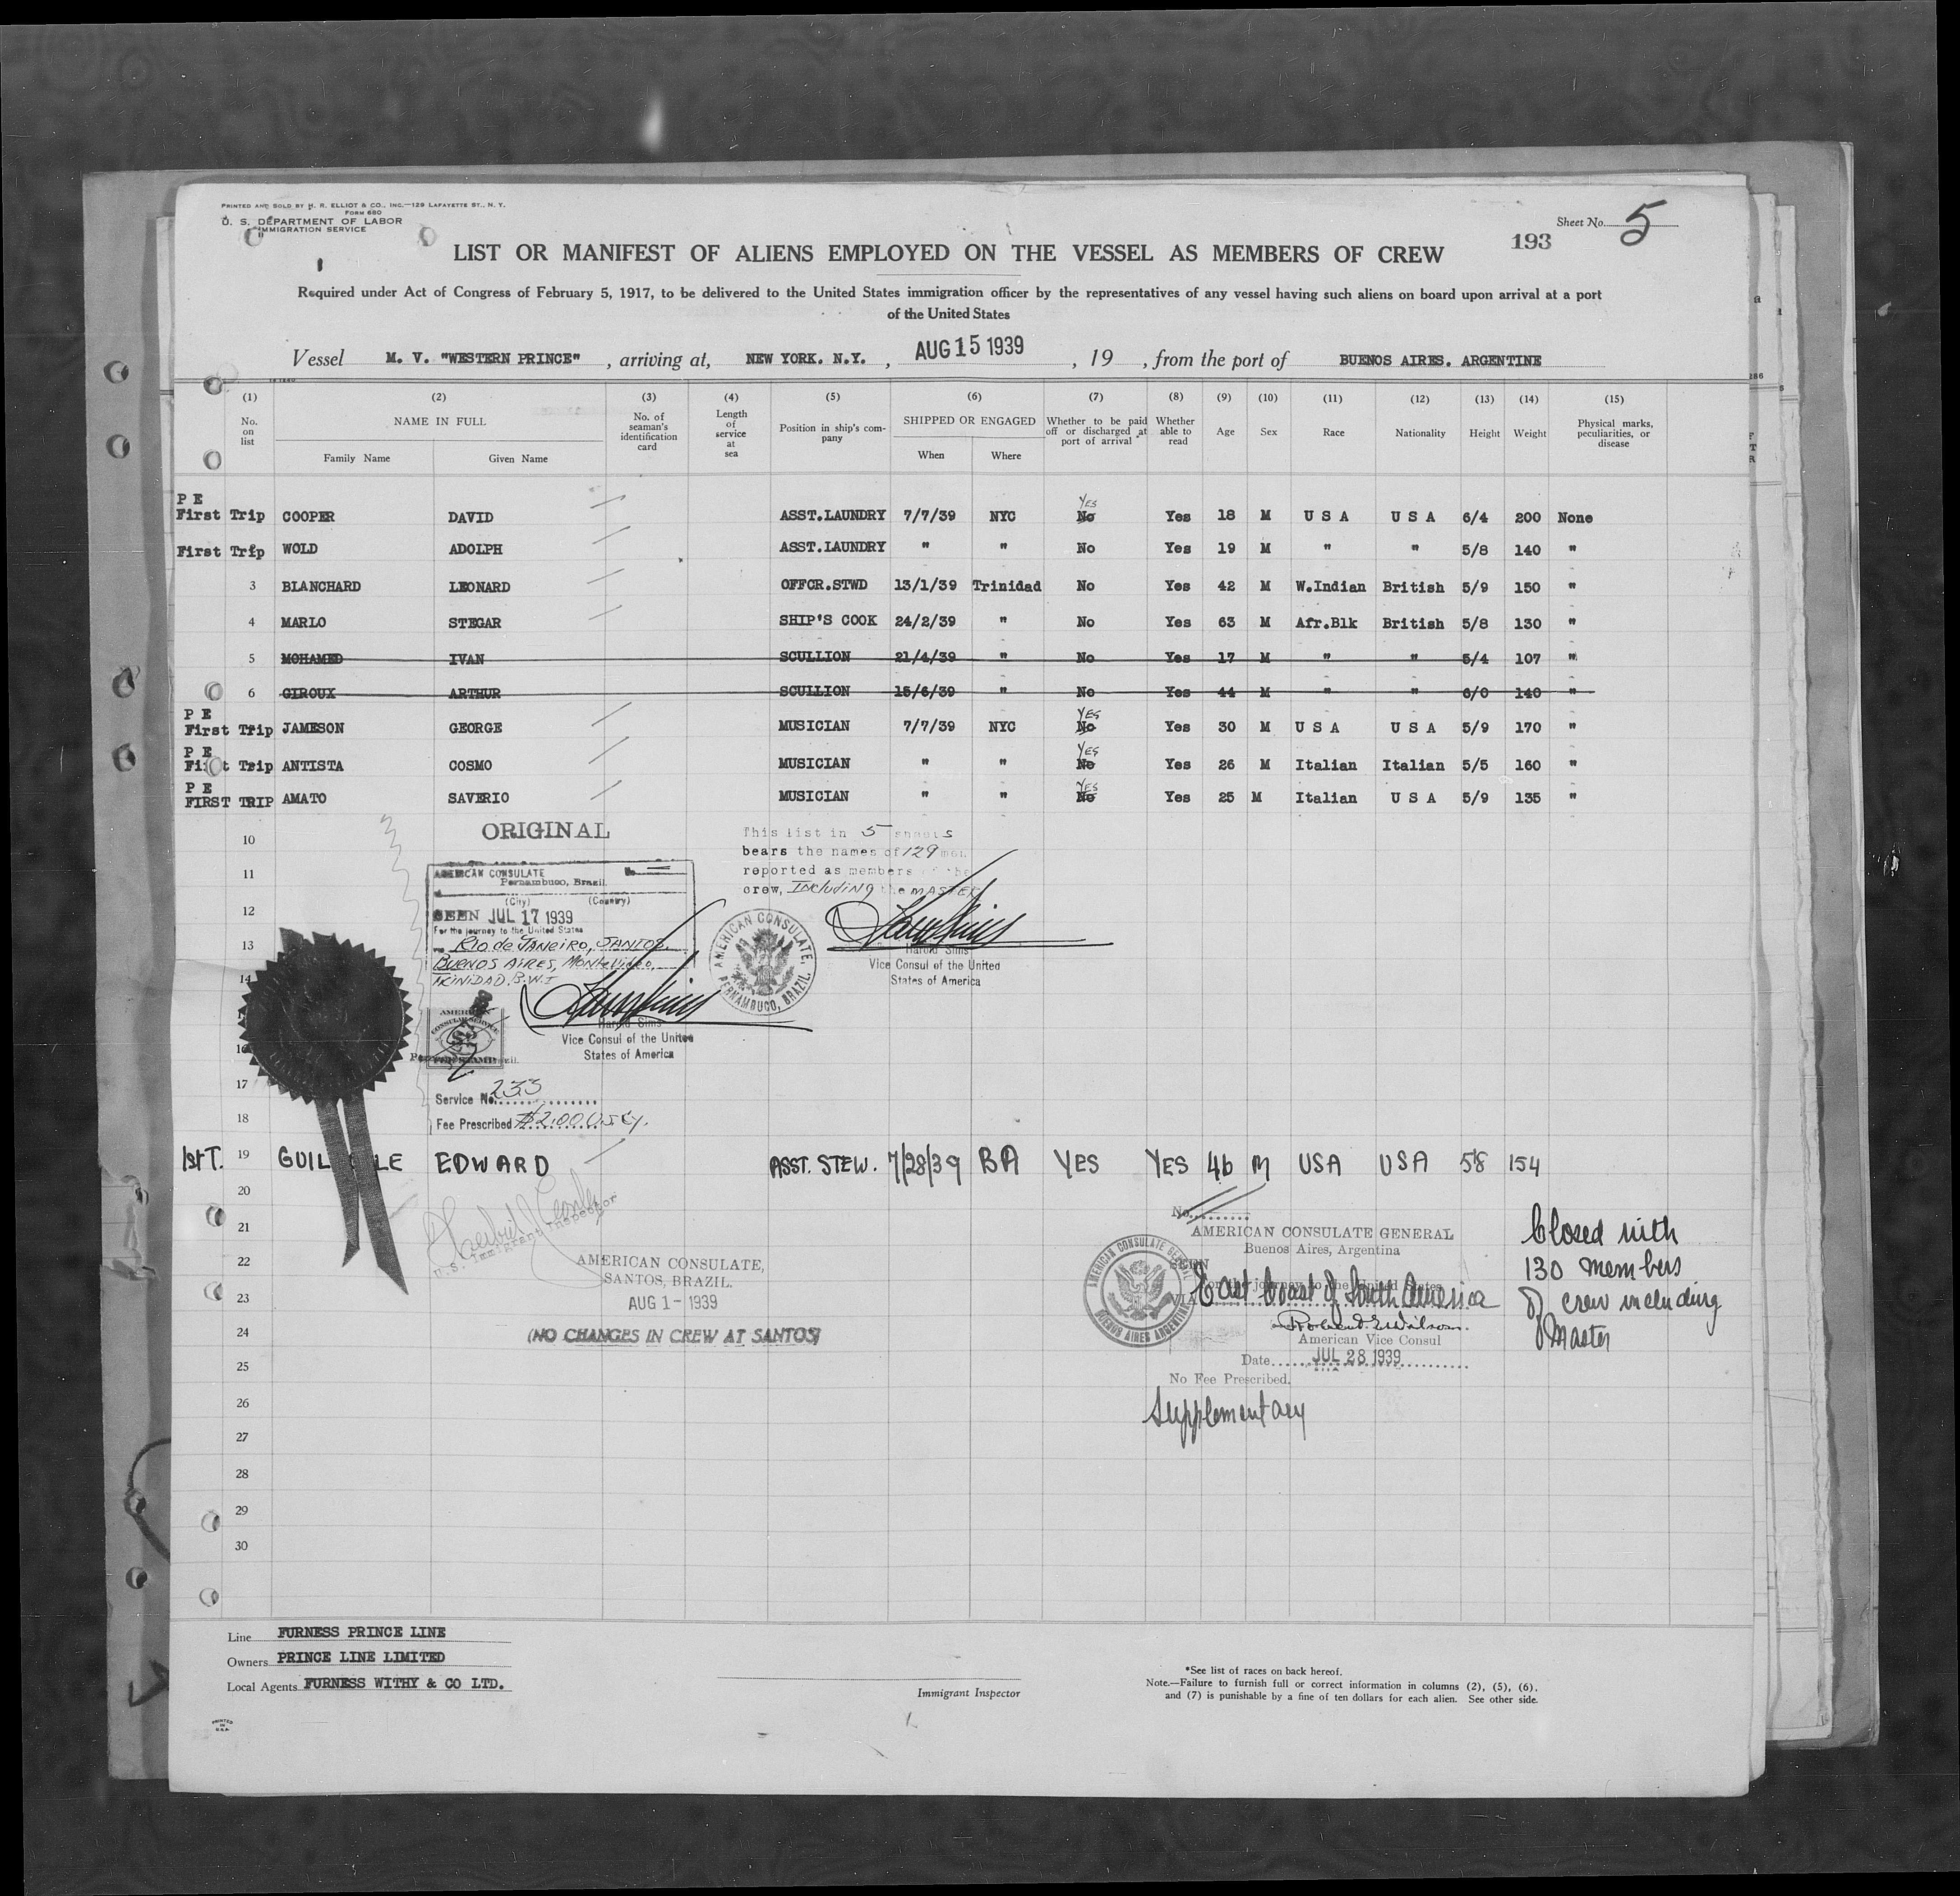 PRINTED AND SOLD BY H. R. ELLIOT & CO., INC.—129 LAFAYETTE ST., N. Y.
FORM 680
U. S. DEPARTMENT OF LABOR
IMMIGRATION SERVICE
Sheet No. 5
193
LIST OR MANIFEST OF ALIENS EMPLOYED ON THE VESSEL AS MEMBERS OF CREW
Required under Act of Congress of February 5, 1917, to be delivered to the United States immigration officer by the representatives of any vessel having such aliens on board upon arrival at a port
of the United States
Vessel M. V. "WESTERN PRINCE" , arriving at, NEW YORK. N.Y. , AUG 15 1939 , 19 , from the port of BUENOS AIRES. ARGENTINE
(1) (2) (3) (4) (5) (6) (7) (8) (9) (10) (11) (12) (13) (14) (15)
No. on list NAME IN FULL Family Name Given Name No. of seaman's identification card Length of service at sea Position in ship's company SHIPPED OR ENGAGED When Where Whether to be paid off or discharged at port of arrival Whether able to read Age Sex Race Nationality Height Weight Physical marks, peculiarities, or disease
P E YES
First Trip COOPER DAVID ASST.LAUNDRY 7/7/39 NYC No Yes 18 M U S A U S A 6/4 200 None
First Trip WOLD ADOLPH ASST.LAUNDRY " " No Yes 19 M " " 5/8 140 "
3 BLANCHARD LEONARD OFFCR.STWD 13/1/39 Trinidad No Yes 42 M W.Indian British 5/9 150 "
4 MARLO STEGAR SHIP'S COOK 24/2/39 " No Yes 63 M Afr.Blk British 5/8 130 "
5 MOHAMED IVAN SCULLION 21/4/39 " No Yes 17 M " " 5/4 107 "
6 GIROUX ARTHUR SCULLION 15/6/39 " No Yes 44 M " " 6/0 140 "
P E YES
First Trip JAMESON GEORGE MUSICIAN 7/7/39 NYC No Yes 30 M U S A U S A 5/9 170 "
P E YES
First Trip ANTISTA COSMO MUSICIAN " " No Yes 26 M Italian Italian 5/5 160 "
P E YES
FIRST TRIP AMATO SAVERIO MUSICIAN " " No Yes 25 M Italian U S A 5/9 135 "
10
11
12
13
14
16
17
18
ORIGINAL
AMERICAN CONSULATE
Pernambuco, Brazil
(City) (Country)
SEEN JUL 17 1939
For the journey to the United States
Rio de Janeiro, SANTOS
BUENOS AIRES, Montevideo,
TRINIDAD, B.W.I
Harold Sims
Vice Consul of the United
States of America
AMERICAN
CONSULAR SERVICE
FEE STAMP
Service No. 233
Fee Prescribed $2.00 U.S. Cy.
This list in 5 sheets
bears the names of 129 men
reported as members of the
crew, Including the MASTER
AMERICAN CONSULATE, PERNAMBUCO, BRAZIL.
Harold Sims
Vice Consul of the United
States of America
1st T. 19 GUIL LE EDWARD ASST. STEW. 7/28/39 BA YES YES 46 M USA USA 5'8 154
20
21
22
23
24
25
26
27
28
29
30
U.S. Immigrant Inspector
AMERICAN CONSULATE,
SANTOS, BRAZIL.
AUG 1 - 1939
(NO CHANGES IN CREW AT SANTOS)
No.
AMERICAN CONSULATE GENERAL
Buenos Aires, Argentina
SEEN
For the journey to the United States
VIA East Coast of South America
AMERICAN CONSULATE GENERAL BUENOS AIRES ARGENTINA
American Vice Consul
Date JUL 28 1939
No Fee Prescribed.
Supplementary
Closed with
130 members
of crew including
Master
Line FURNESS PRINCE LINE
Owners PRINCE LINE LIMITED
Local Agents FURNESS WITHY & CO LTD.
Immigrant Inspector
*See list of races on back hereof.
Note.—Failure to furnish full or correct information in columns (2), (5), (6),
and (7) is punishable by a fine of ten dollars for each alien. See other side.
PRINTED
IN
U.S.A.